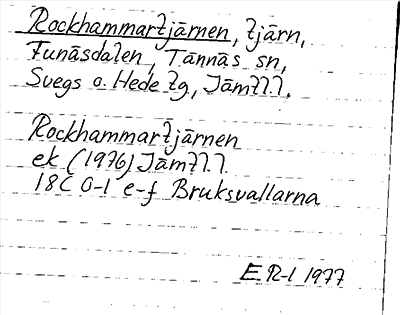 Rockhammartjärnen, tjärn,
Funäsdalen, Tännäs sn,
Svegs o. Hede tg, Jämtl.l.
Rockhammartjärnen
ek (1976) Jämtl.l.
18C 0-1 e-f Bruksvallarna
E R-l 1977